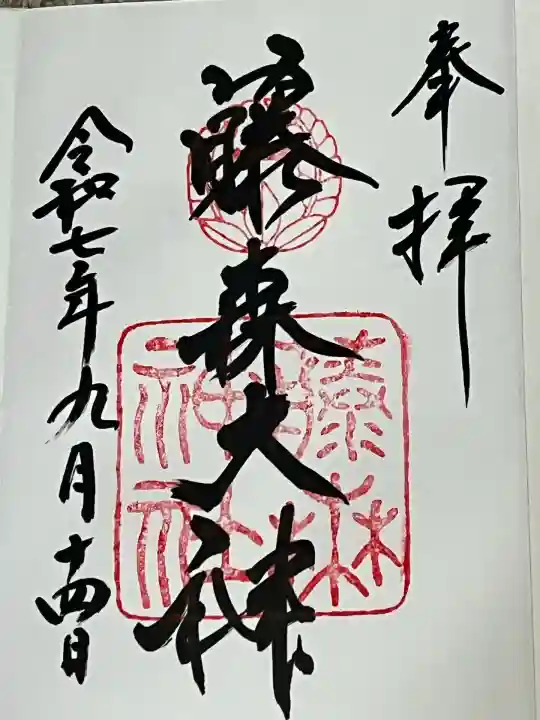 奉拝
藤森大神
令和七年九月十四日
藤森神社